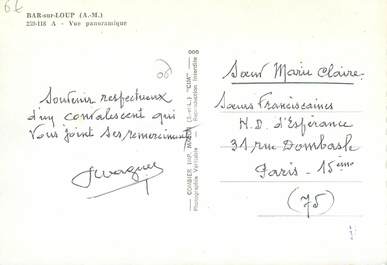 BAR-sur-LOUP (A.-M.)
259-118 A - Vue panoramique
Souvenir respectueux
d'un convalescent qui
vous joint ses remerciements
COMBIER IMP. MACON (S.-et-L.) "CIM"
Photographie Véritable - Reproduction Interdite
Sœur Marie Claire
Sœurs Franciscaines
N.D. d'Espérance
31 rue Dombasle
Paris - 15ème
(75)